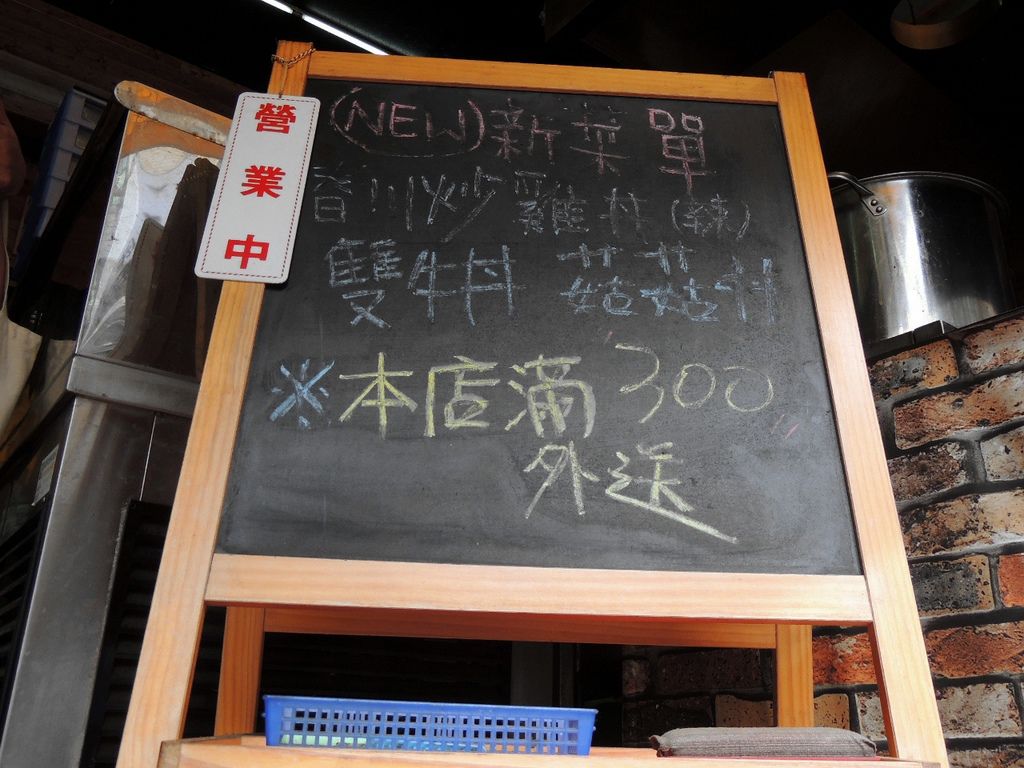 營業中
(NEW)新菜單
川炒雞丼(辣)
雙牛丼 菇菇丼
※本店滿300
外送